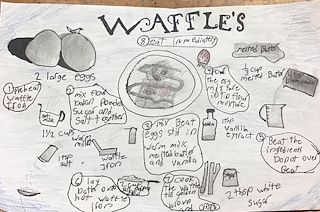 WAFFLE'S
8 Eat immediately
2 large eggs
melted Butter
1/3 cup
melted Butter
1 Preheat
waffle
Iron
2 mix flour
Powder
Sugar and
Salt together
4 Pour
the egg
mixture
into flour
mixture
1 1/2 cups
warm milk
3 mix Beat
eggs stir in
warm milk
melted butter
and vanilla
1 tsp
vanilla
extract
5 Beat the
ingredients
Do not over
Beat
1 tsp
salt
waffle
iron
6
batter onto
hot waffle
iron
7 Cook
the waffle
till golden
brown
and crisp
2 tbsp white
sugar